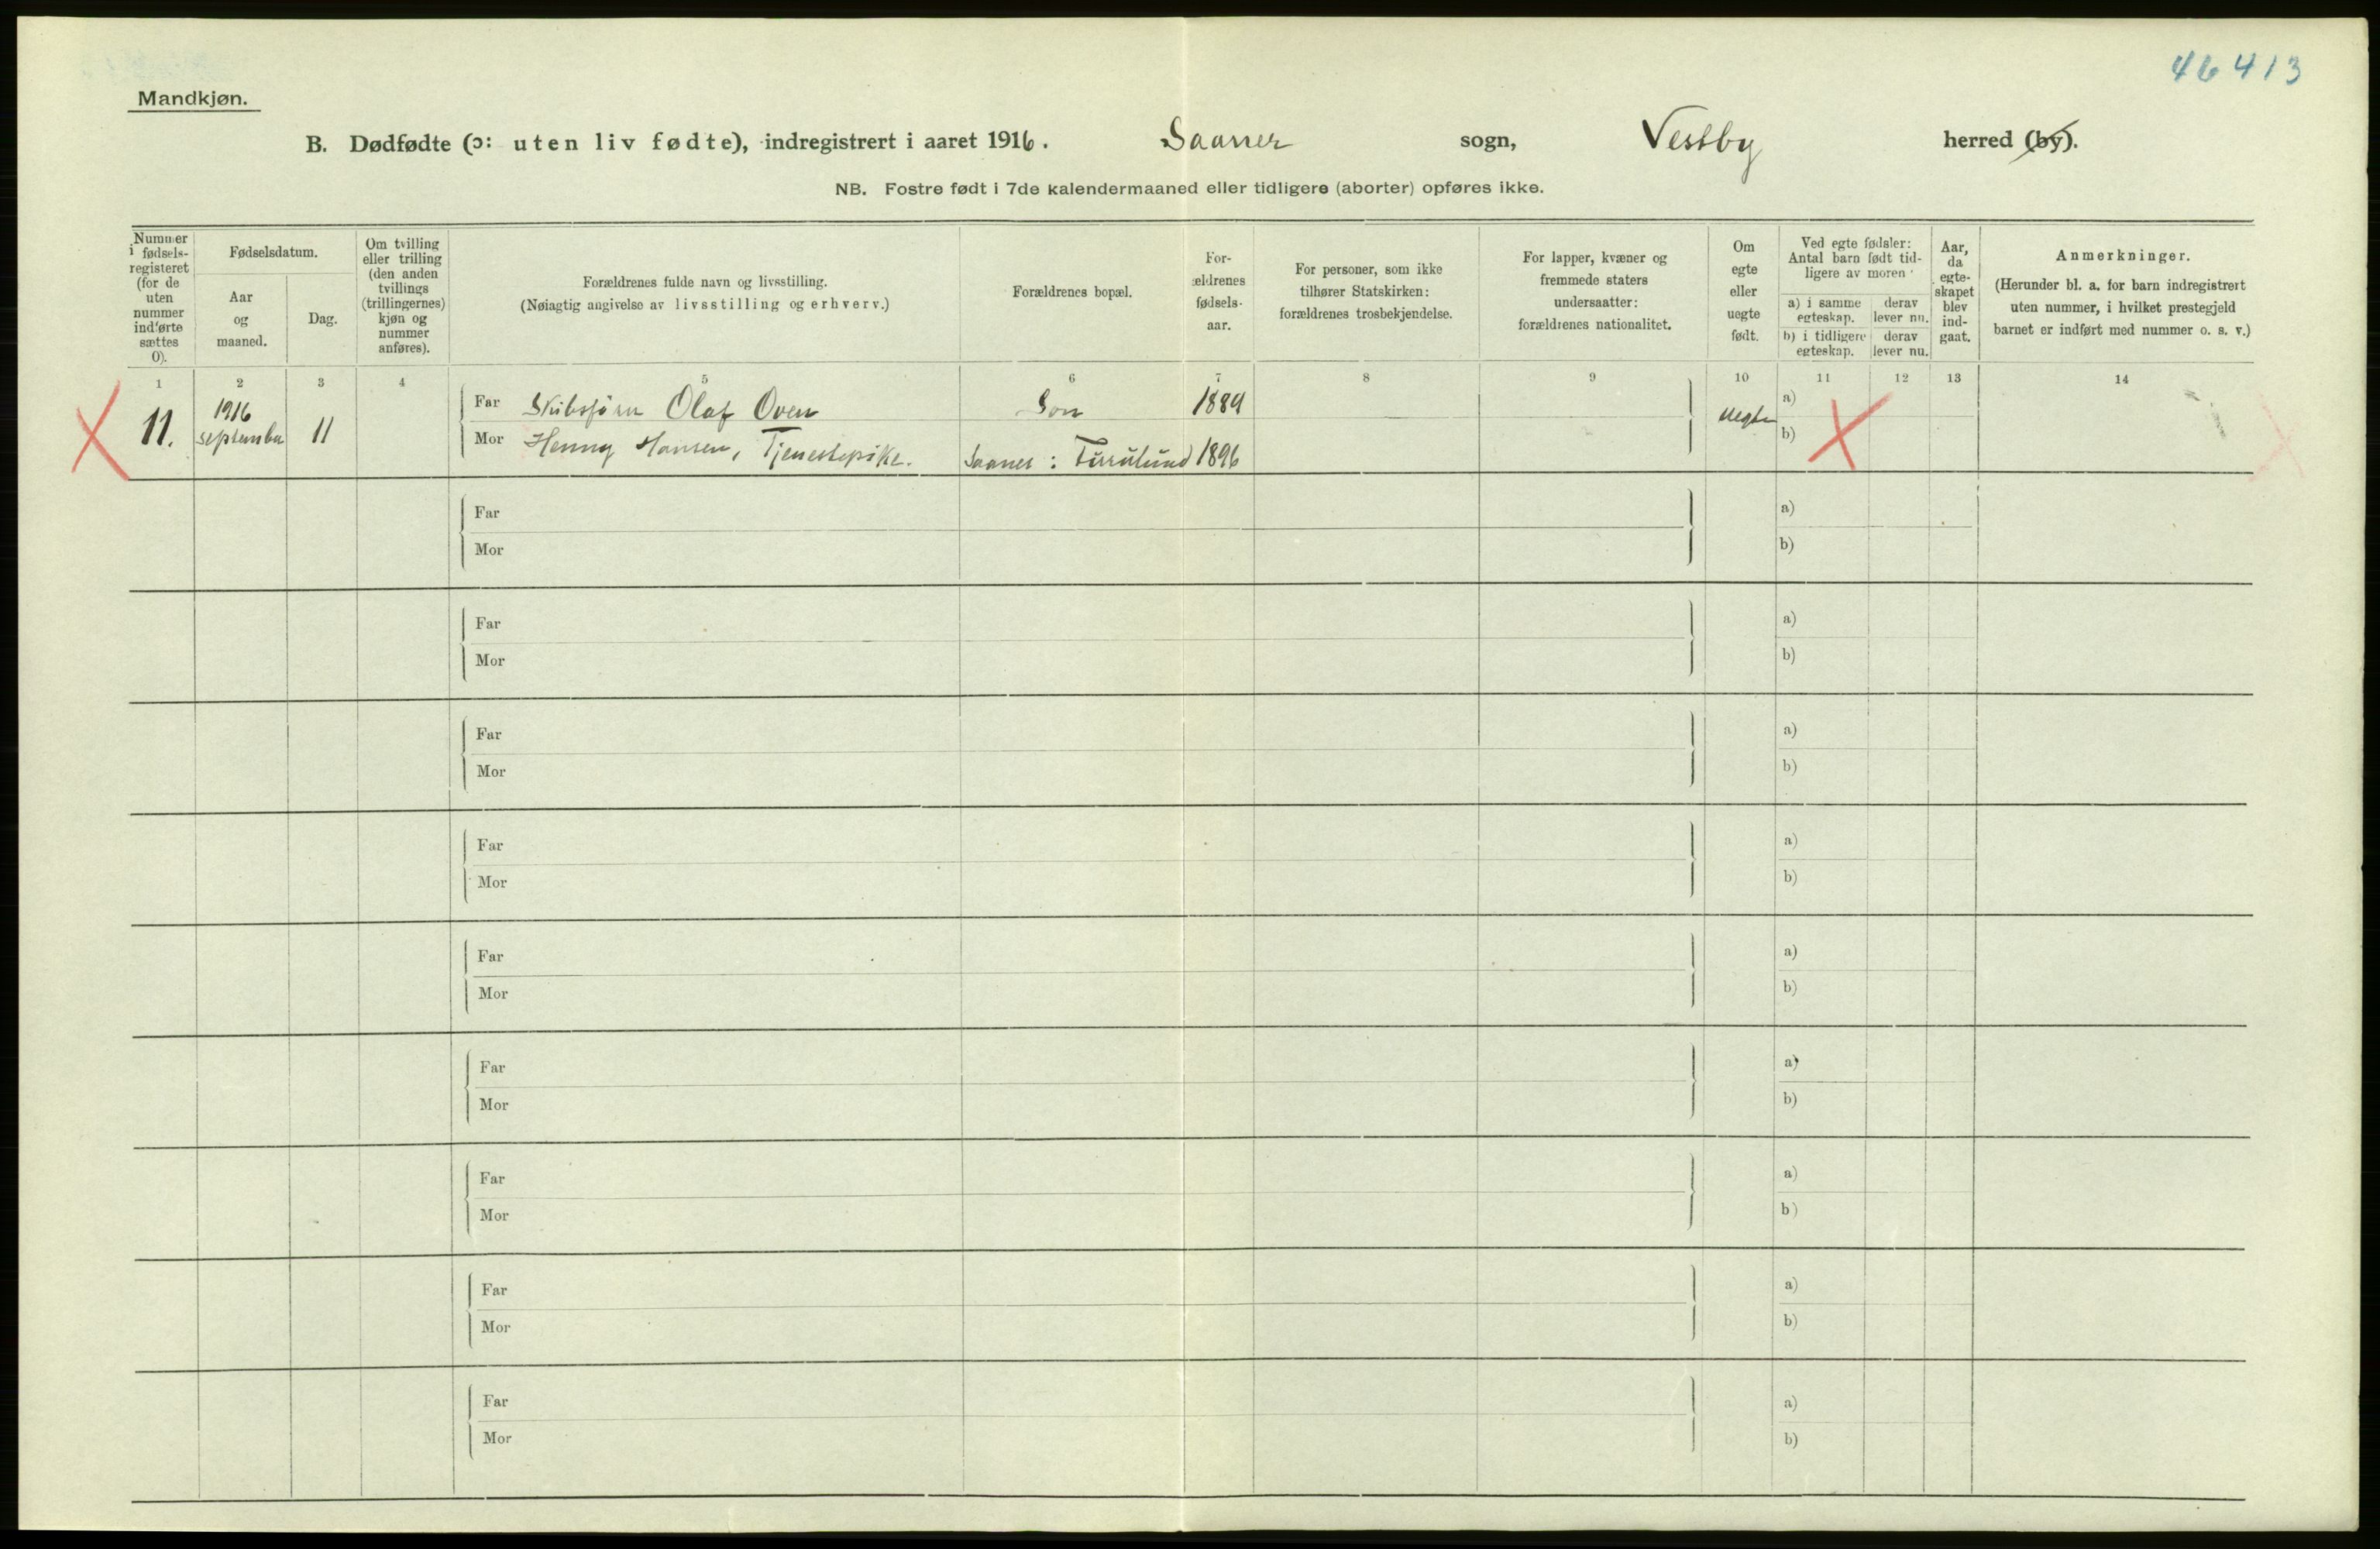 46413
Mandkjøn.
B. Dødfødte (ɔ: uten liv fødte), indregistrert i aaret 1916. Saaner sogn, Vestby herred (by).
NB. Fostre født i 7de kalendermaaned eller tidligere (aborter) opføres ikke.
Nummer
i fødsels-
registeret
(for de
uten
nummer
indførte
sættes
0).
Fødselsdatum.
Aar
og
maaned.
Dag.
Om tvilling
eller trilling
(den anden
tvillings
(trillingernes)
kjøn og
nummer
anføres).
Forældrenes fulde navn og livsstilling.
(Nøiagtig angivelse av livsstilling og erhverv.)
Forældrenes bopæl.
For-
ældrenes
fødsels-
aar.
For personer, som ikke
tilhører Statskirken:
forældrenes trosbekjendelse.
For lapper, kvæner og
fremmede staters
undersaatter:
forældrenes nationalitet.
Om
egte
eller
uegte
født.
Ved egte fødsler:
Antal barn født tid-
ligere av moren
a) i samme
egteskap.
derav
lever nu.
b) i tidligere
egteskap.
derav
lever nu.
Aar,
da
egte-
skapet
blev
ind-
gaat.
Anmerkninger.
(Herunder bl. a. for barn indregistrert
uten nummer, i hvilket prestegjeld
barnet er indført med nummer o. s. v.)
1 2 3 4 5 6 7 8 9 10 11 12 13 14
11. 1916 september 11
Far Olaf Oven Son 1889
Mor Henny Hansen, Tjenestepike. Saaner: 1896
uegte
a)
b)
Far a)
Mor b)
Far a)
Mor b)
Far a)
Mor b)
Far a)
Mor b)
Far a)
Mor b)
Far a)
Mor b)
Far a)
Mor b)
Far a)
Mor b)
Far a)
Mor b)